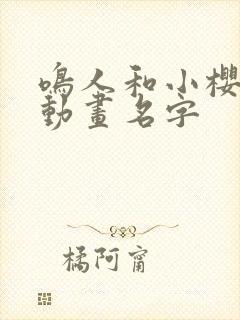 鳴人和小櫻
動畫名字
橘阿甯